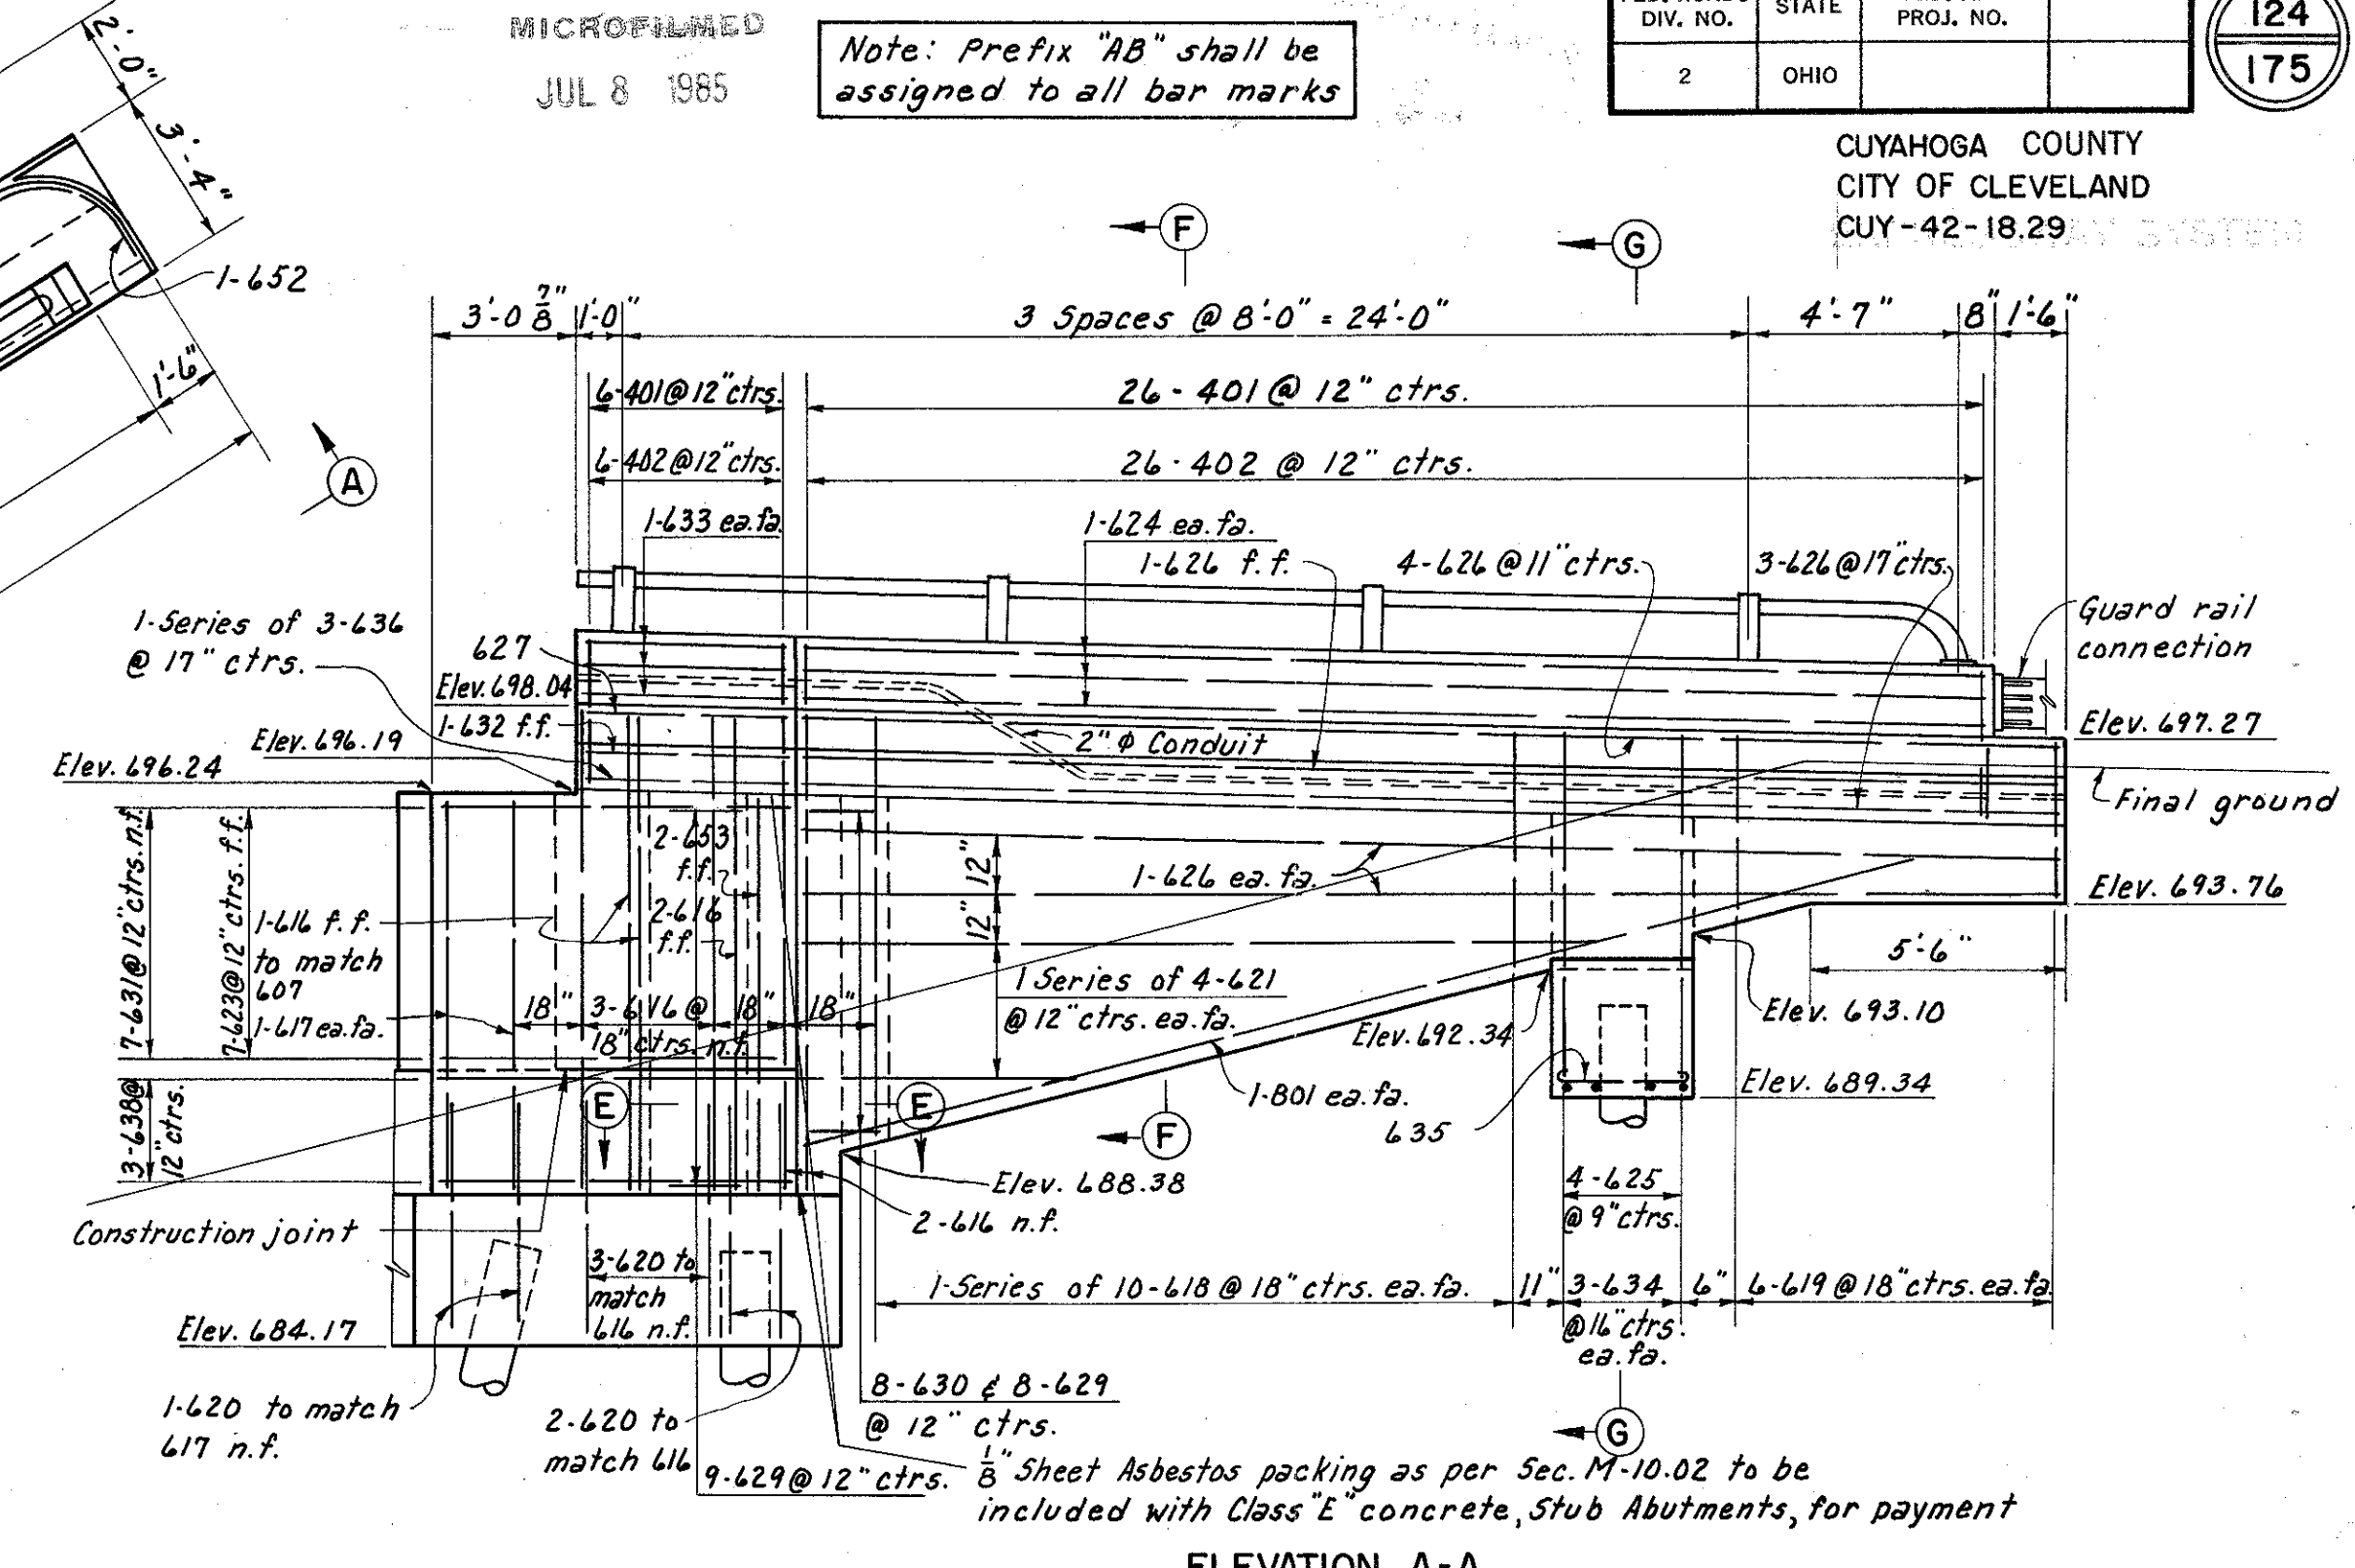 MICROFILMED
JUL 8 1985
Note: Prefix "AB" shall be
assigned to all bar marks
DIV. NO.
STATE
PROJ. NO.
2
OHIO
124
175
CUYAHOGA COUNTY
CITY OF CLEVELAND
CUY-42-18.29
SYSTEM
2'-0"
3'-4"
1-652
1'-6"
A
F
G
3'-0 7/8"
1'-0"
3 Spaces @ 8'-0" = 24'-0"
4'-7"
8"
1'-6"
6-401@12"ctrs.
26-401 @ 12" ctrs.
6-402@12"ctrs.
26-402 @ 12" ctrs.
1-633 ea.fa.
1-624 ea.fa.
1-626 f.f.
4-626 @ 11" ctrs.
3-626@17"ctrs.
Guard rail
connection
1-Series of 3-636
@ 17" ctrs.
627
Elev. 698.04
1-632 f.f.
Elev. 696.19
Elev. 696.24
2" Φ Conduit
Elev. 697.27
Final ground
7-631@12"ctrs.n.f.
7-623@12"ctrs.f.f.
2-653
f.f.
2-616
f.f.
12"
12"
1-626 ea.fa.
Elev. 693.76
1-616 f.f.
to match
607
1-617 ea.fa.
18"
3-616 @
18" ctrs. n.f.
18"
18"
1 Series of 4-621
@ 12"ctrs. ea.fa.
Elev. 692.34
5'-6"
Elev. 693.10
3-638@
12"ctrs.
E
E
1-801 ea.fa.
F
635
Elev. 689.34
Elev. 688.38
2-616 n.f.
4-625
@ 9"ctrs.
Construction joint
3-620 to
match
616 n.f.
1-Series of 10-618 @ 18" ctrs. ea.fa.
11"
3-634
@16"ctrs.
ea.fa.
6"
6-619 @ 18"ctrs.ea.fa.
Elev. 684.17
1-620 to match
617 n.f.
2-620 to
match 616
8-630 & 8-629
@ 12" ctrs.
9-629@12" ctrs.
G
1/8" Sheet Asbestos packing as per Sec. M-10.02 to be
included with Class "E" concrete, Stub Abutments, for payment
ELEVATION A-A